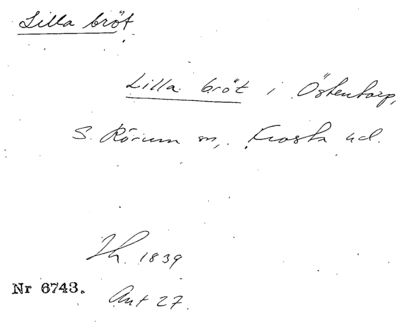 Lilla bröt.
Lilla bröt i Östentorp,
S. Rörum sn, Frosta hd.
Lh. 1839
Nr 6743.
Ant 27.